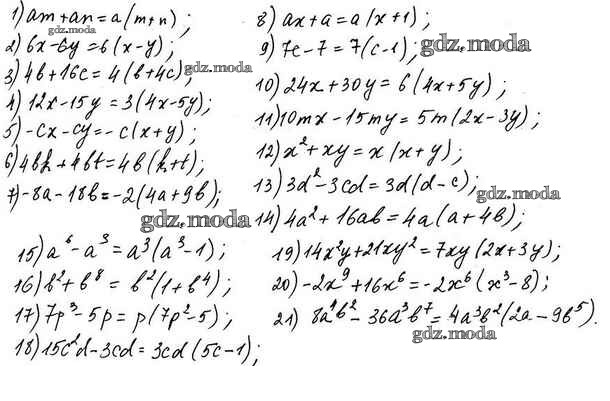 1) am + an = a(m+n);
2) 6x - 6y = 6(x-y);
3) 4b + 16c = 4(b+4c);
4) 12x - 15y = 3(4x-5y);
5) -cx - cy = -c(x+y);
6) 4bk + 4bt = 4b(k+t);
7) -8a - 18b = -2(4a+9b);
8) ax + a = a(x+1);
9) 7c - 7 = 7(c-1);
10) 24x + 30y = 6(4x+5y);
11) 10mx - 15my = 5m(2x-3y);
12) x² + xy = x(x+y);
13) 3d² - 3cd = 3d(d-c);
14) 4a² + 16ab = 4a(a+4b);
15) a⁶ - a³ = a³(a³-1);
16) b² + b⁸ = b²(1+b⁴);
17) 7p³ - 5p = p(7p²-5);
18) 15c²d - 3cd = 3cd(5c-1);
19) 14x²y + 21xy² = 7xy(2x+3y);
20) -2x⁹ + 16x⁶ = -2x⁶(x³-8);
21) 8a⁴b² - 36a³b⁷ = 4a³b²(2a-9b⁵).
gdz.moda
gdz.moda
gdz.moda
gdz.moda
gdz.moda